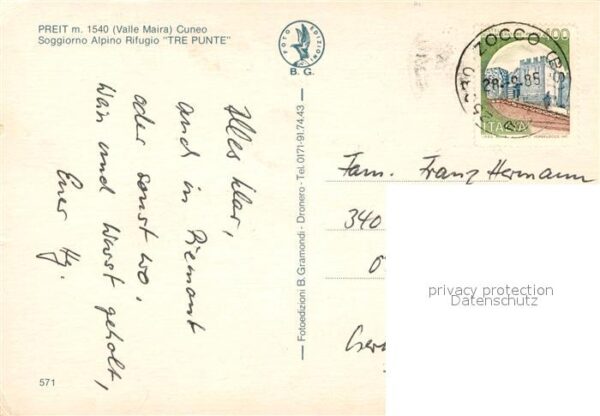 PREIT m. 1540 (Valle Maira) Cuneo
Soggiorno Alpino Rifugio "TRE PUNTE"
Alles klar,
und in Piemont
oder sonst wo,
Wein und Wurst geholt,
Euer Hg.
571
FOTO EDIZIONI
B. G.
Fotoedizioni B. Gramondi - Dronero - Tel. 0171-91.74.43
400
ITALIA
ZOCCO (BS)
28 85
Fam. Franz Hermann
340
privacy protection
Datenschutz